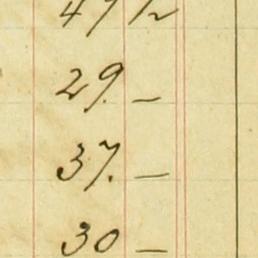 47 1/2
29. —
37. —
30 —